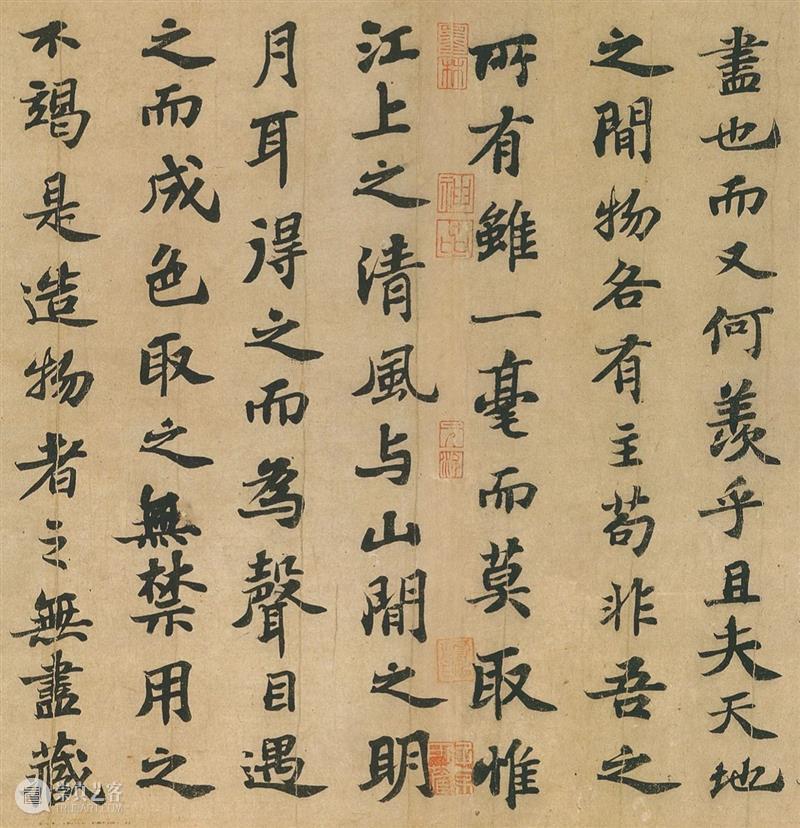 盡也而又何羨乎且夫天地
之間物各有主苟非吾之
所有雖一毫而莫取惟
江上之清風与山間之明
月耳得之而為聲目遇
之而成色取之無禁用之
不竭是造物者之無盡藏
崇真艺客